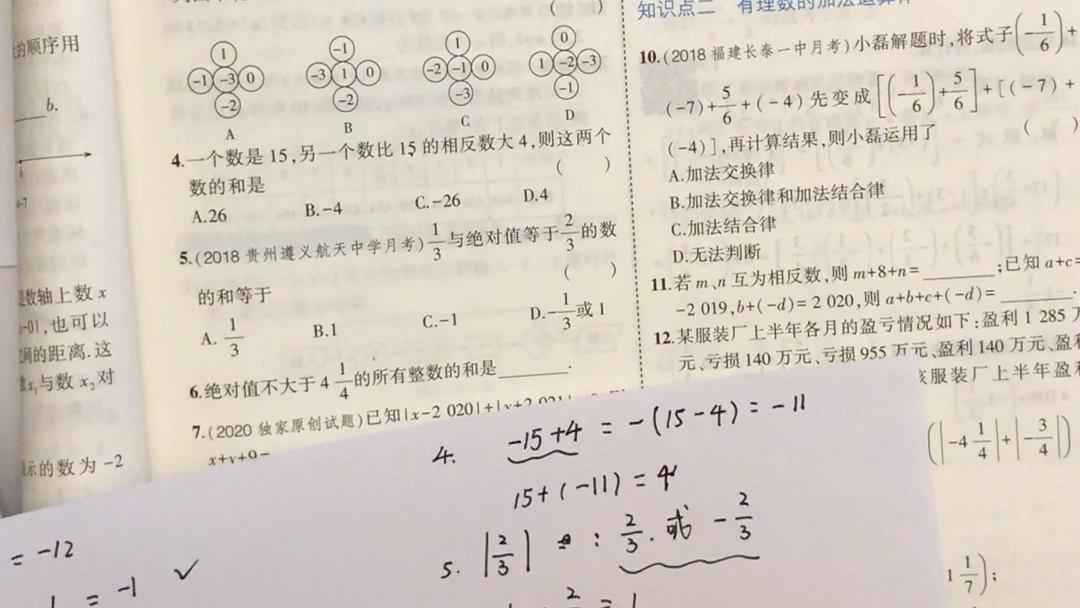 的顺序用
b.
是数轴上数 x
,也可以
间的距离.这
与数 x₂对
示的数为 -2
( )
1
-1 -3 0
-2
A
-1
-3 1 0
-2
B
1
-2 -1 0
-3
C
0
1 -2 -3
-1
D
4.一个数是 15,另一个数比 15 的相反数大 4,则这两个
数的和是 ( )
A.26 B.-4 C.-26 D.4
5.(2018 贵州遵义航天中学月考) 1/3 与绝对值等于 2/3 的数
的和等于 ( )
A. 1/3 B.1 C.-1 D.-1/3 或 1
6.绝对值不大于 4 1/4 的所有整数的和是________.
7.(2020 独家原创试题)已知|x-2 020|+|y+2 021|
x+y+9=
知识点二 有理数的加法运算律
10.(2018 福建长泰一中月考)小磊解题时,将式子(-1/6)+
(-7)+5/6+(-4)先变成[(-1/6)+5/6]+[(-7)+
(-4)],再计算结果,则小磊运用了 ( )
A.加法交换律
B.加法交换律和加法结合律
C.加法结合律
D.无法判断
11.若 m、n 互为相反数,则 m+8+n=________;已知 a+c=
-2 019,b+(-d)=2 020,则 a+b+c+(-d)=________.
12.某服装厂上半年各月的盈亏情况如下:盈利 1 285 万
元、亏损 140 万元、亏损 955 万元、盈利 140 万元、盈利
服装厂上半年盈利
(|-4 1/4|+|-3/4|)
1 1/7);
4. -15+4 = -(15-4) = -11
15+(-11) = 4
5. |2/3| : 2/3. 或 -2/3
= -12
= -1 ✓
2/3 = 1